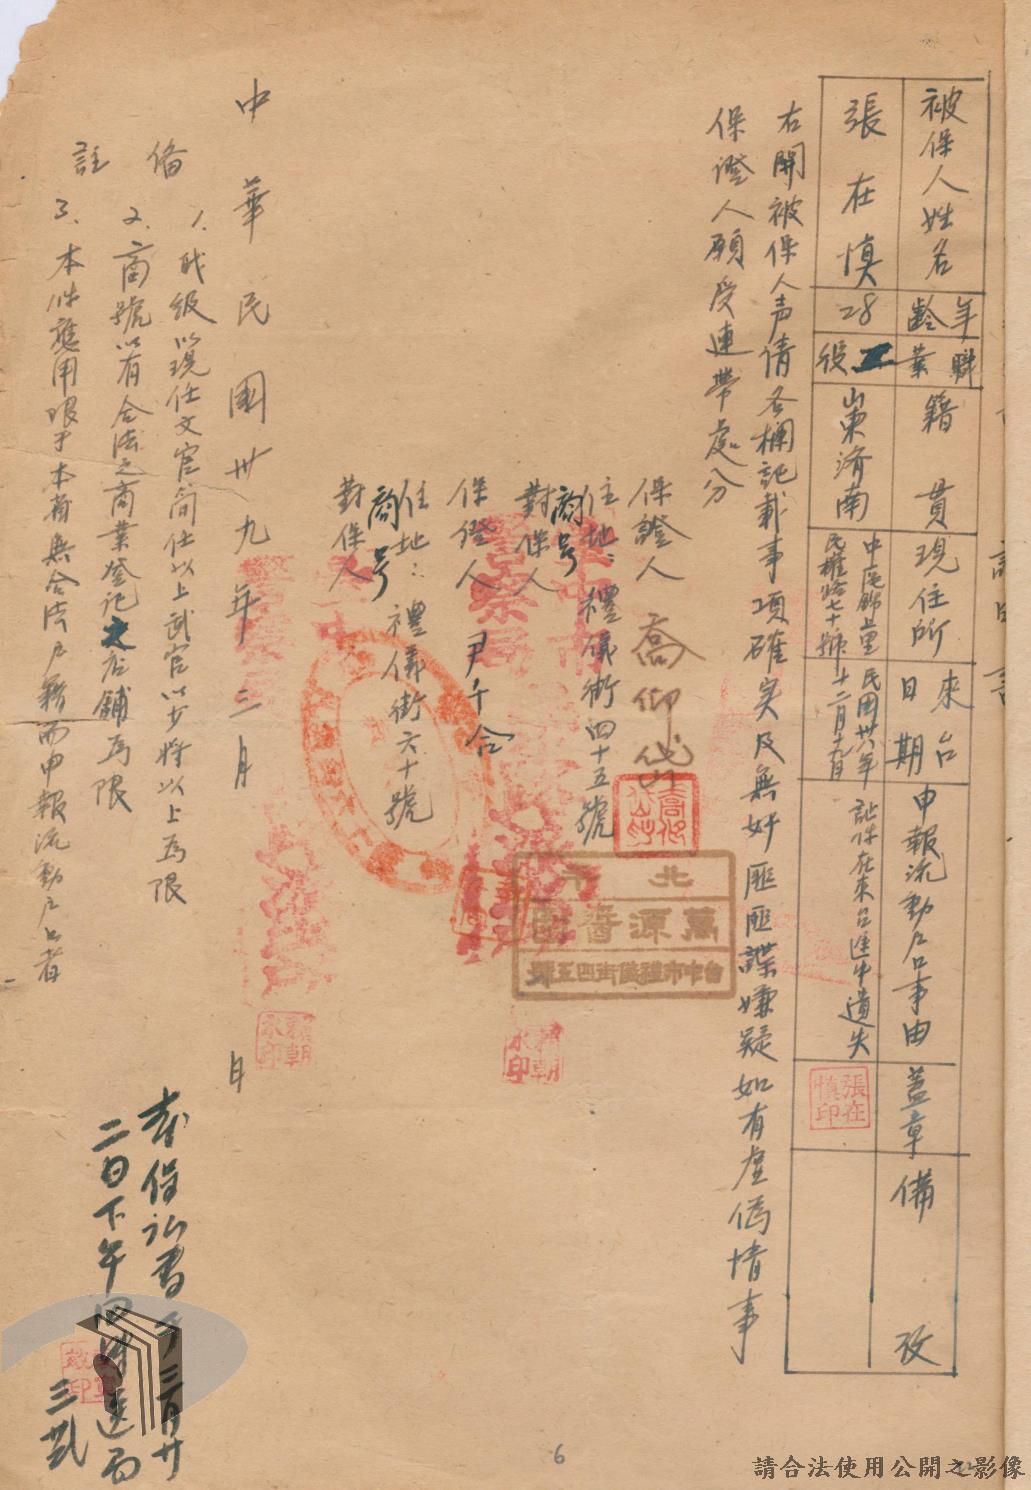 被保人姓名
年齡
職業
籍貫
現住所
來台日期
申報流動戶口事由
蓋章
備攷
張在慎
28
工役
山東濟南
中區錦里
民權路七十號
民國卅八年
十二月十六日
証件在來台途中遺失
張在慎印
右開被保人声请各欄記載事項確实及無奸匪匪諜嫌疑如有虛偽情事
保證人願受連帶處分
保證人 喬仰岱
住地：禮儀街四十五號
商号
對保人
保證人 尹千合
住地：禮儀街六十號
商号
對保人
北平
萬源醬園
台中市禮儀街四五號
賴朝永印
賴朝永印
中華民國卅九年三月 日
備註
1. 職級以現任文官简任以上武官以少將以上為限
2. 商號以有合法之商業登記之店舖為限
3. 本件應用限于本省無合法户籍而申報流動户口者
本保証書于三月廿
二日下午四時送局
6
請合法使用公開之影像